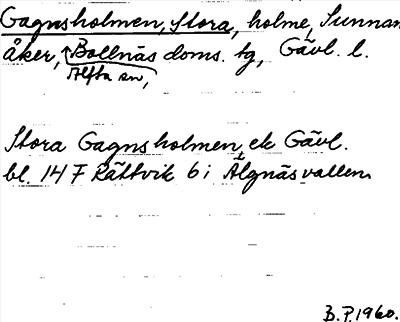 Gagnsholmen, Stora, holme, Sunnan
åker, Bollnäs doms. tg, Gävl. l.
Alfta sn,
Stora Gagnsholmen, ek Gävl.
bl. 14 F Rättvik 6 i Älgnäsvallen
B.P. 1960.